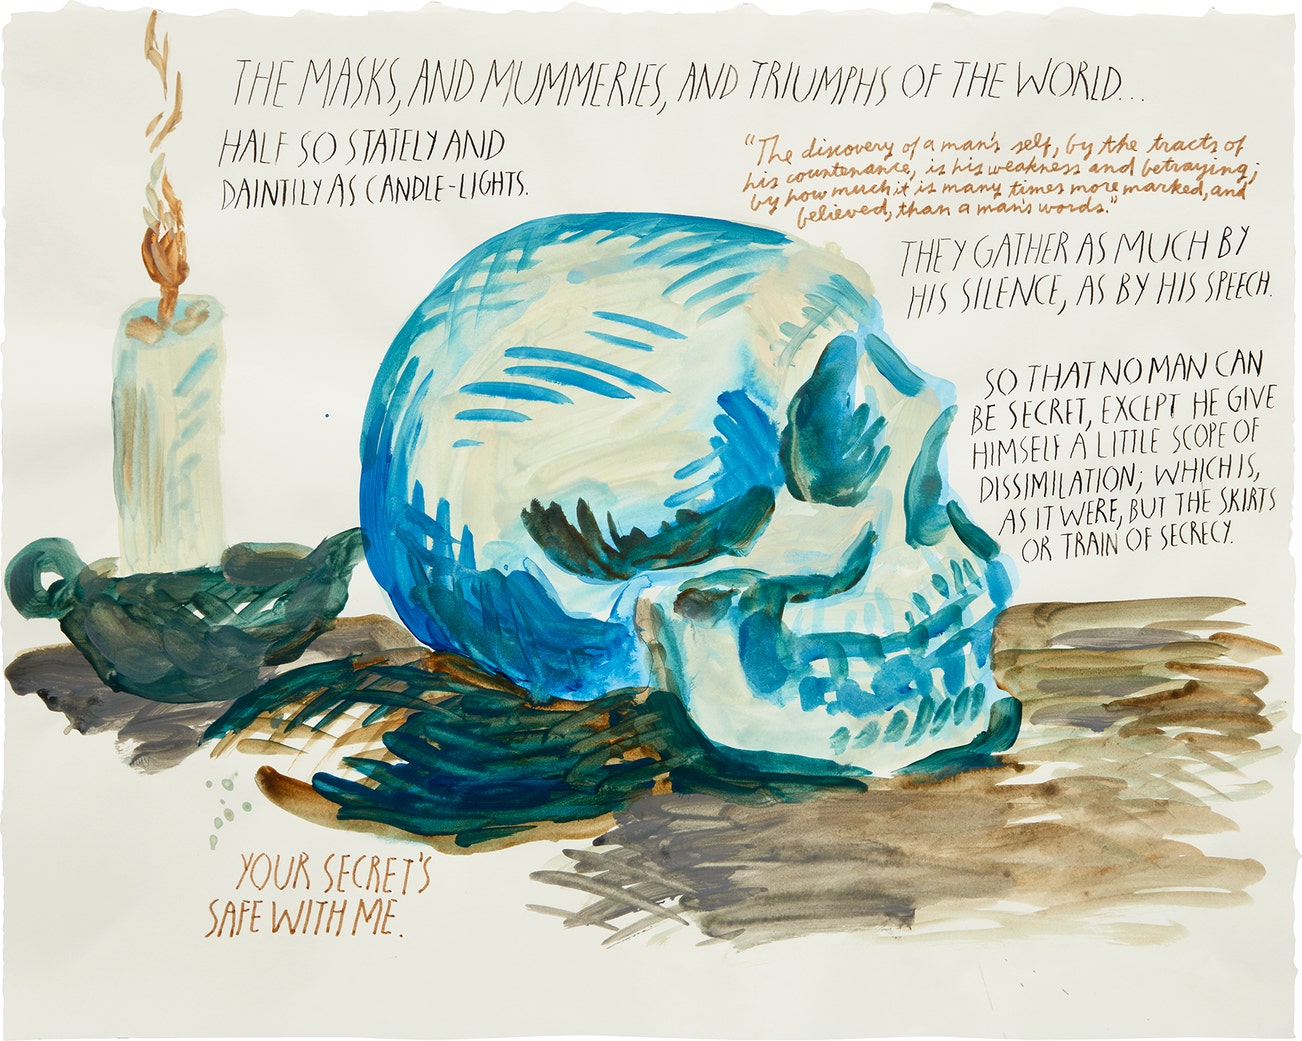 THE MASKS, AND MUMMERIES, AND TRIUMPHS OF THE WORLD...
HALF SO STATELY AND
DAINTILY AS CANDLE-LIGHTS.
"The discovery of a man's self, by the tracts of
his countenance, is his weakness and betraying;
by how much it is many times more marked, and
believed, than a man's words."
THEY GATHER AS MUCH BY
HIS SILENCE, AS BY HIS SPEECH.
SO THAT NO MAN CAN
BE SECRET, EXCEPT HE GIVE
HIMSELF A LITTLE SCOPE OF
DISSIMILATION; WHICH IS,
AS IT WERE, BUT THE SKIRTS
OR TRAIN OF SECRECY.
YOUR SECRET'S
SAFE WITH ME.